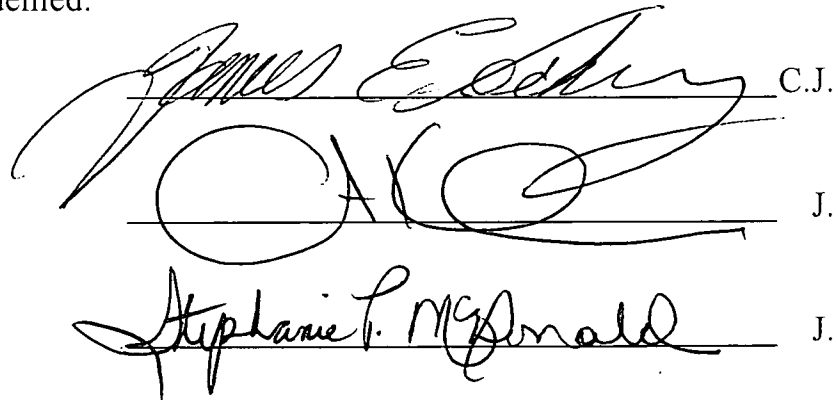 denied.
James E. C.J.
J.
Stephanie P. McDonald J.